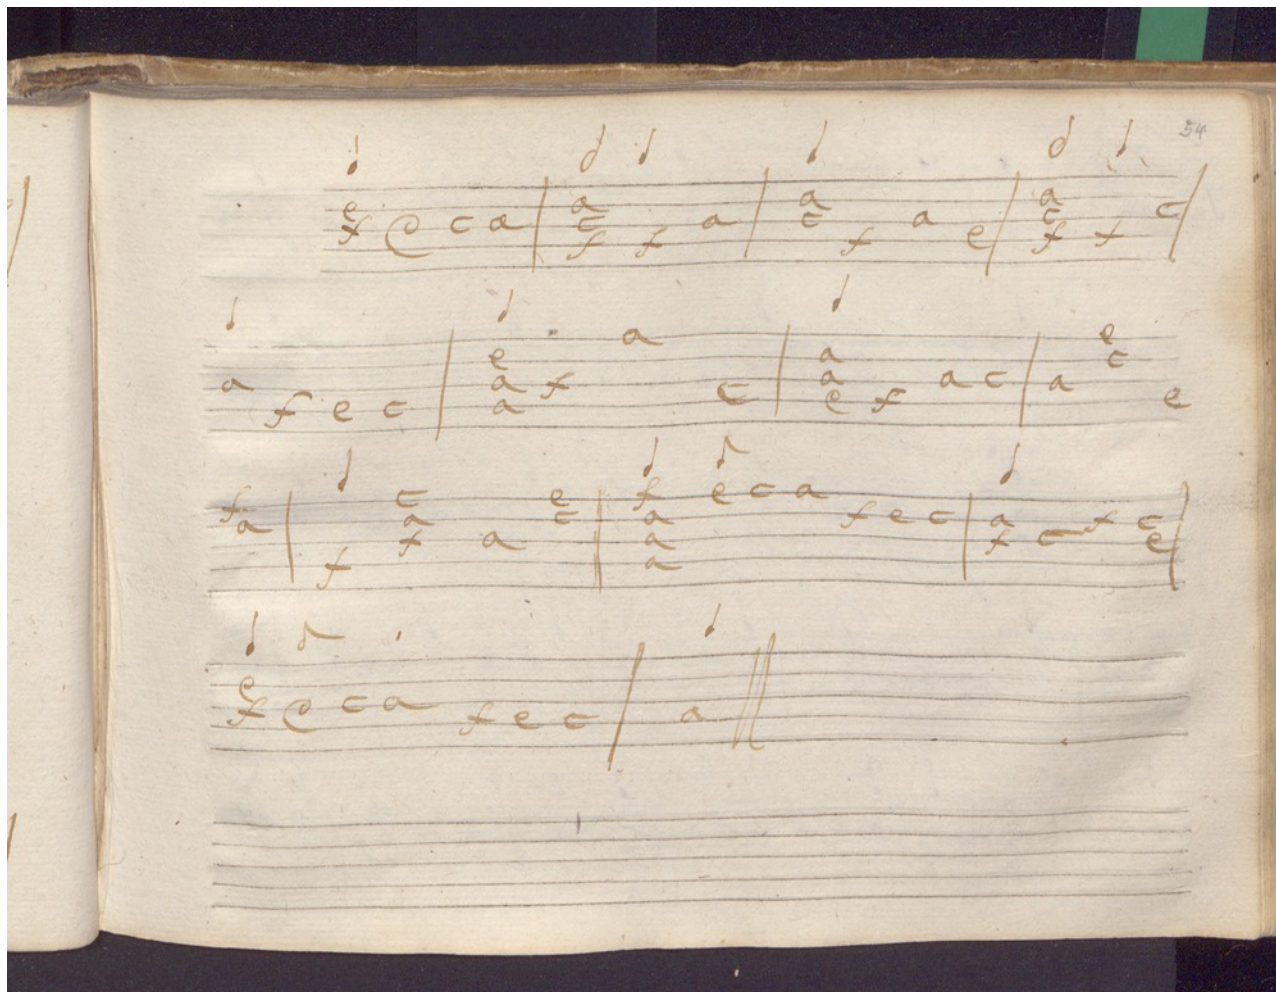 54
e f e c a a c f f a a c f a e a c f f c
a f e c e a a f a c a a e f a c a e c e
f a f c a f a e c f a a a e c a f e c a f c f c e
e f e c a f e c a